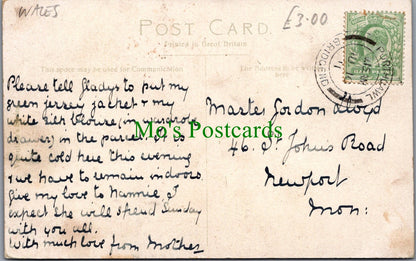 WALES
£3.00
POST CARD.
Printed in Great Britain
This space may be used for Communication
The Address to be written
Please tell Gladys to put my
green jersey jacket & my
white silk blouse, (in wardrobe
drawer) in the parcel. It is
quite cold here this evening
& we have to remain indoors.
Give my love to Nannie. I
expect she will spend Sunday
with you all.
With much love from Mother
Master Gordon Lloyd
46. St John's Road
Newport
Mon:
Mo's Postcards
PORTHCAWL
BRIDGEND